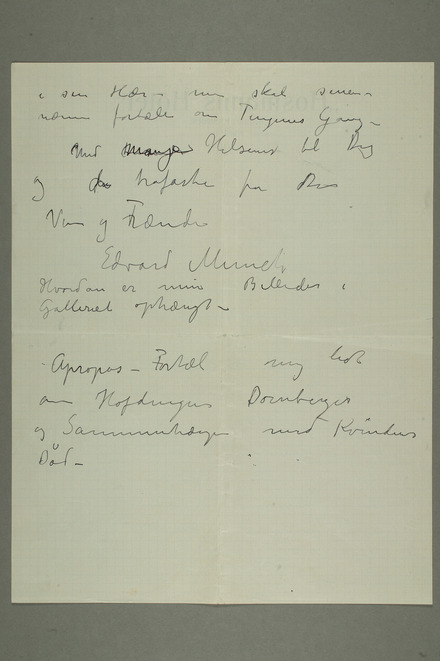 i sin Hær – nu skal senere
nærm fortælle om Tingenes Gang –
Med mange Hilsener til Dig
og
Ven og Frænde
Edvard Munch
Hvordan er mine Billeder i
Galleriet ophængt –
Apropos – Fortæl mig lidt
om Høfdingen Dornberger
og Sammenhængen med Kvindens
Død –